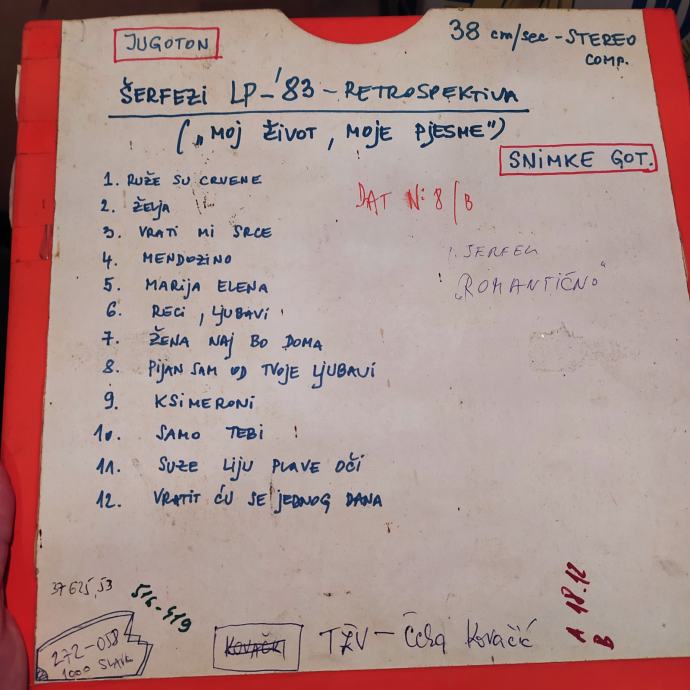 JUGOTON
38 cm/sec - STEREO
COMP.
ŠERFEZI LP-'83 - RETROSPEKTIVA
(„MOJ ŽIVOT, MOJE PJESME")
SNIMKE GOT.
1. RUŽE SU CRVENE
2. ŽELJA
3. VRATI MI SRCE
4. MENDOZINO
5. MARIJA ELENA
6. RECI, LJUBAVI
7. ŽENA NAJ BO DOMA
8. PIJAN SAM OD TVOJE LJUBAVI
9. KSIMERONI
10. SAMO TEBI
11. SUZE LIJU PLAVE OČI
12. VRATIT ĆU SE JEDNOG DANA
DAT N: 8/B
„ROMANTIČNO"
516-419
272-058
1000 SLAVE
KOVAČIĆ
TZV - Čeha Kovačić
A 18.12
B